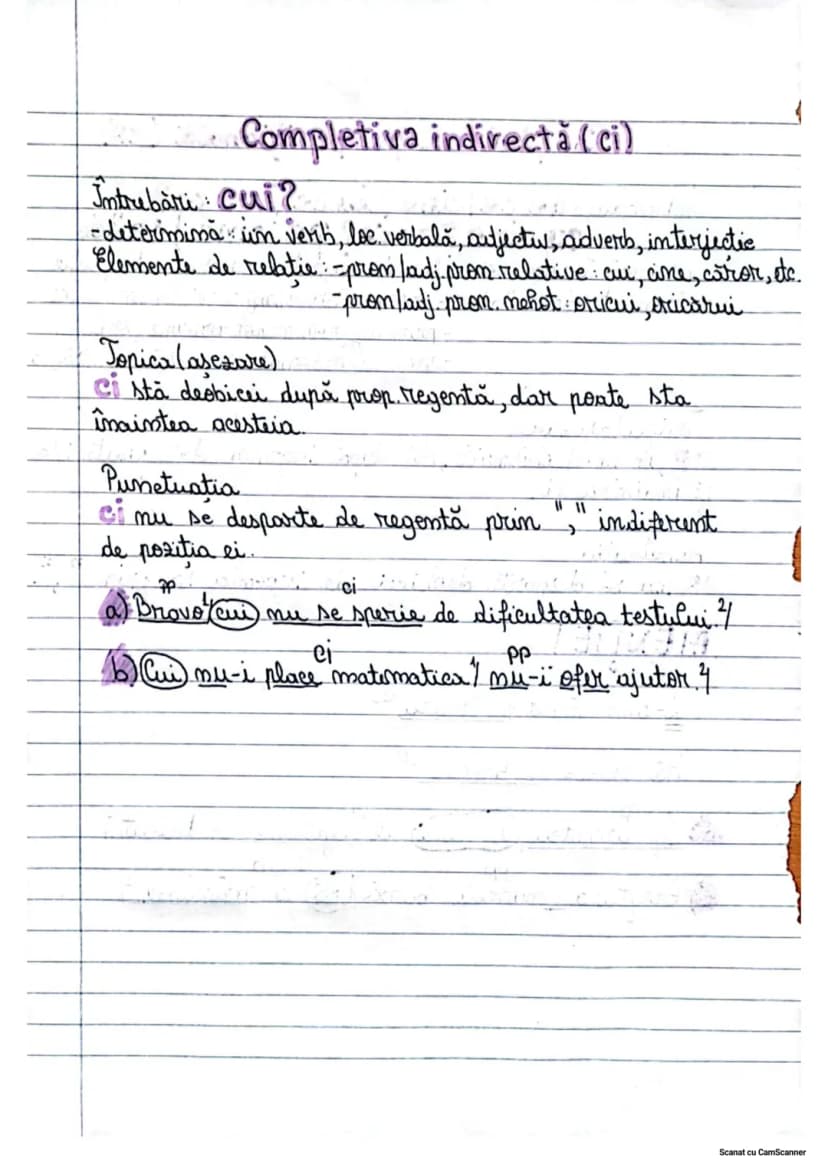 Completiva indirectă (ci)
Întrebări: cui?
-determină: un verb, loc. verbală, adjectiv, adverb, interjecție
Elemente de relație: -pron/adj. pron relative: cui, cine, căror, etc.
-pron/adj. pron. nehot: oricui, oricărui
Topica (așezare)
ci stă deobicei după prop. regentă, dar poate sta
înaintea acesteia.
Punctuația
ci nu se desparte de regentă prin "," indiferent
de poziția ei.
pp ci
a) Bravo¹/ cui nu se sperie de dificultatea testului.²/
ci pp
b) Cui nu-i place matematica¹/ nu-i ofer ajutor.²/
Scanat cu CamScanner